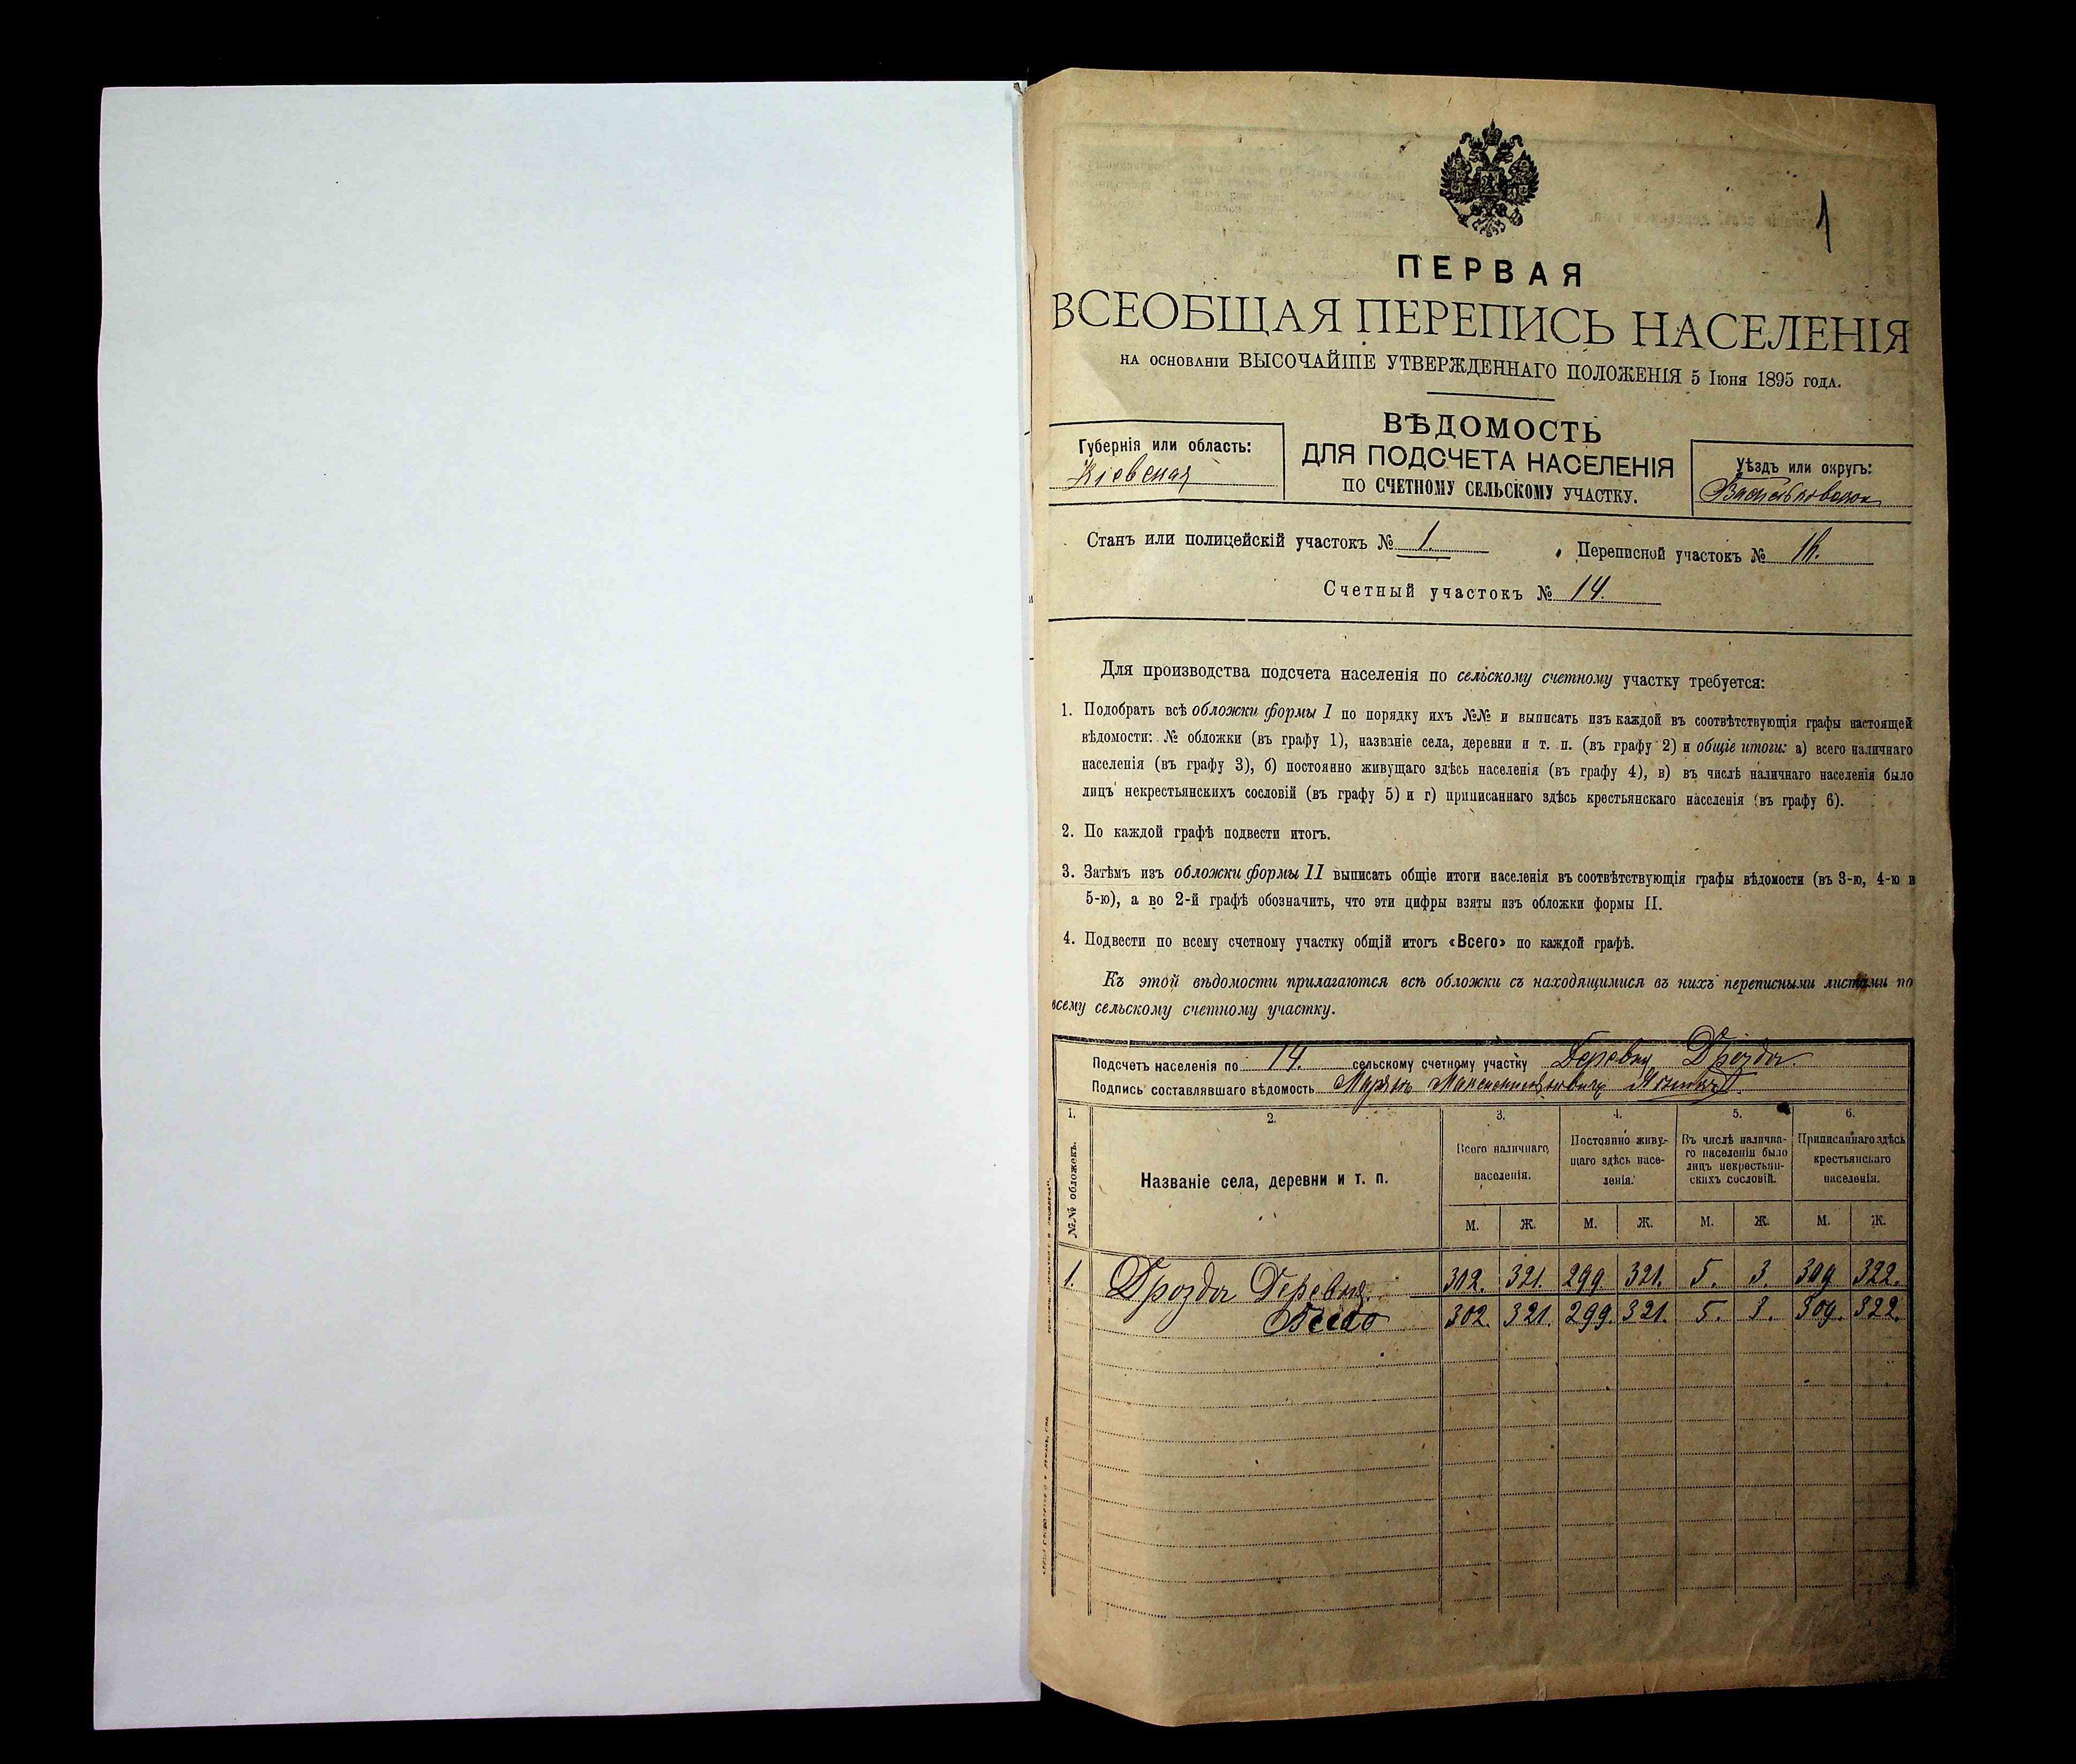 1
ПЕРВАЯ
ВСЕОБЩАЯ ПЕРЕПИСЬ НАСЕЛЕНІЯ
НА ОСНОВАНІИ ВЫСОЧАЙШЕ УТВЕРЖДЕННАГО ПОЛОЖЕНІЯ 5 Іюня 1895 ГОДА.
ВѢДОМОСТЬ
ДЛЯ ПОДСЧЕТА НАСЕЛЕНІЯ
ПО СЧЕТНОМУ СЕЛЬСКОМУ УЧАСТКУ.
Губернія или область:
Кіевская
Уѣздъ или округъ:
Станъ или полицейскій участокъ № 1. Переписной участокъ №
Счетный участокъ № 14.
Для производства подсчета населенія по сельскому счетному участку требуется:
1. Подобрать всѣ обложки формы I по порядку ихъ №№ и выписать изъ каждой въ соотвѣтствующія графы настоящей
вѣдомости: № обложки (въ графу 1), названіе села, деревни и т. п. (въ графу 2) и общіе итоги: а) всего наличнаго
населенія (въ графу 3), б) постоянно живущаго здѣсь населенія (въ графу 4), в) въ числѣ наличнаго населенія было
лицъ некрестьянскихъ сословій (въ графу 5) и г) приписаннаго здѣсь крестьянскаго населенія (въ графу 6).
2. По каждой графѣ подвести итогъ.
3. Затѣмъ изъ обложки формы II выписать общіе итоги населенія въ соотвѣтствующія графы вѣдомости (въ 3-ю, 4-ю и
5-ю), а во 2-й графѣ обозначить, что эти цифры взяты изъ обложки формы II.
4. Подвести по всему счетному участку общій итогъ «Всего» по каждой графѣ.
Къ этой вѣдомости прилагаются всѣ обложки съ находящимися въ нихъ переписными листами по
всему сельскому счетному участку.
Подсчетъ населенія по 14. сельскому счетному участку Деревня Дрозды.
Подпись составлявшаго вѣдомость
1. 2. 3. 4. 5. 6.
№№ обложекъ.
Названіе села, деревни и т. п.
Всего наличнаго
населенія.
Постоянно живу-
щаго здѣсь насе-
ленія.
Въ числѣ налична-
го населенія было
лицъ некрестьян-
скихъ сословій.
Приписаннаго здѣсь
крестьянскаго
населенія.
М. Ж. М. Ж. М. Ж. М. Ж.
1. Дрозды Деревня. 302. 321. 299. 321. 5. 3. 309 322.
Всего 302. 321. 299. 321. 5. 3. 309. 322.